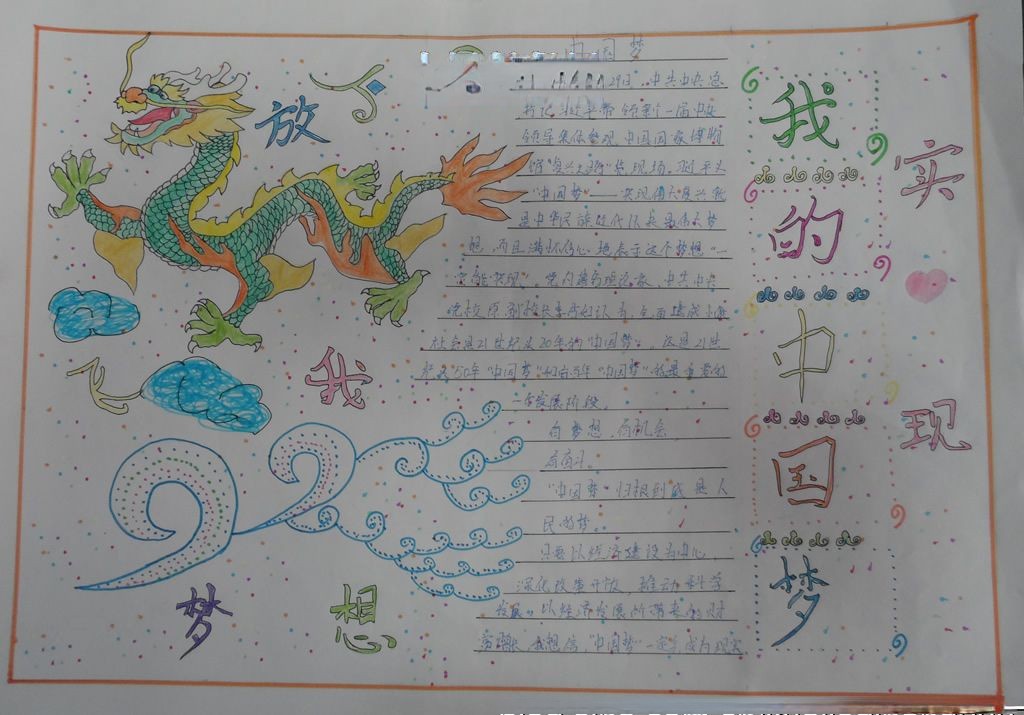 放飞
我
梦 想
中国梦
29日，中共中央总
书记习近平带领新一届中央
领导集体参观中国国家博物
馆“复兴之路”展现场。习近平
“中国梦”——实现伟大复兴就
是中华民族近代以来最伟大梦
想，而且满怀信心地表示这个梦想“一
定能实现”。党内著名理论家，中共中央
党校原副校长 认为，全面建成小康
社会是21世纪头20年的“中国梦”。这是21世
纪头50年“中国梦”和百年“中国梦”的最重要的
一个发展阶段。
有梦想，有机会，
有奋斗。
“中国梦”归根到底是人
民的梦。
只要以经济建设为中心，
深化改革开放，推动科学
发展。以经济发展所带来的财
我想信，“中国梦”一定会成为现实
我的中国梦
实现